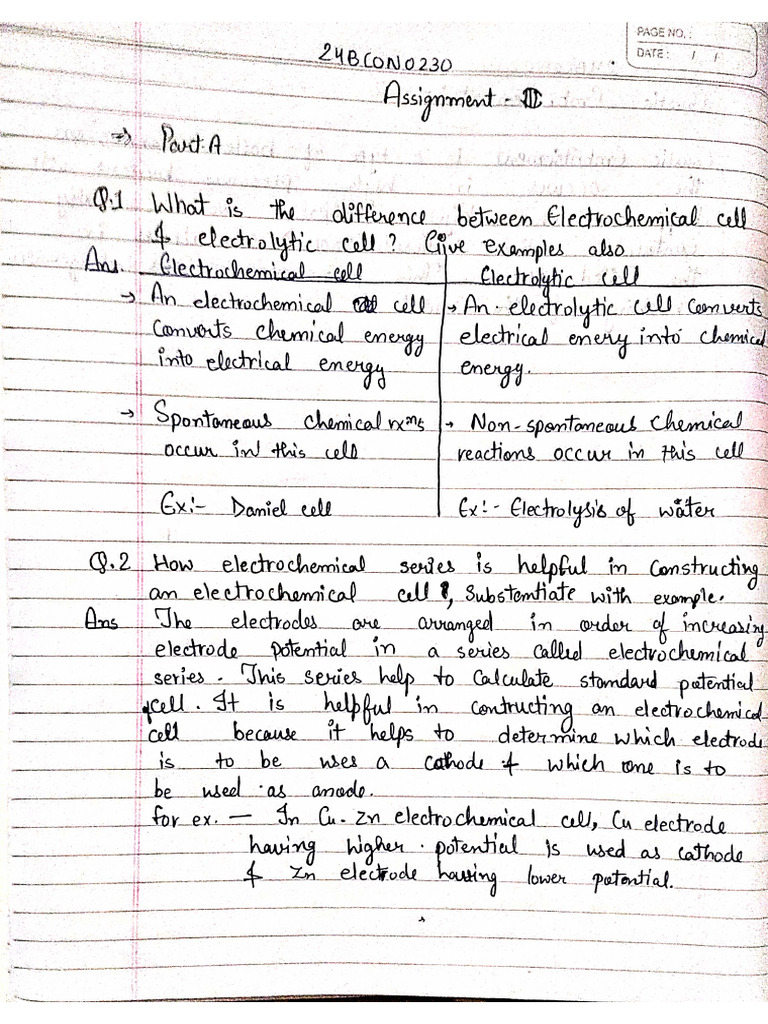 PAGE NO. :
DATE : / /
24BCON0230
Assignment - II
⇒ Part:A
Q.1 What is the difference between Electrochemical cell
& electrolytic cell? Give examples also
Ans. Electrochemical cell | Electrolytic cell
→ An electrochemical cell | → An electrolytic cell converts
converts chemical energy | electrical enery into chemical
into electrical energy | energy.
→ Spontaneous chemical rxⁿs | → Non-spontaneous chemical
occur in this cell | reactions occur in this cell
Ex:- Daniel cell | Ex:- Electrolysis of water
Q.2 How electrochemical series is helpful in constructing
an electrochemical cell, Substantiate with example.
Ans The electrodes are arranged in order of increasing
electrode potential in a series called electrochemical
series. This series help to calculate standard potential
cell. It is helpful in contructing an electrochemical
cell because it helps to determine which electrode
is to be uses a cathode & which one is to
be used as anode.
for ex. — In Cu-Zn electrochemical cell, Cu electrode
having higher potential is used as cathode
& Zn electrode having lower potential.